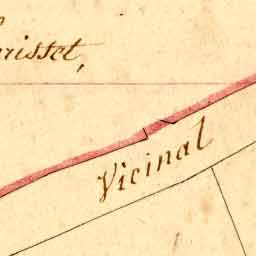 risset,
Vicinal